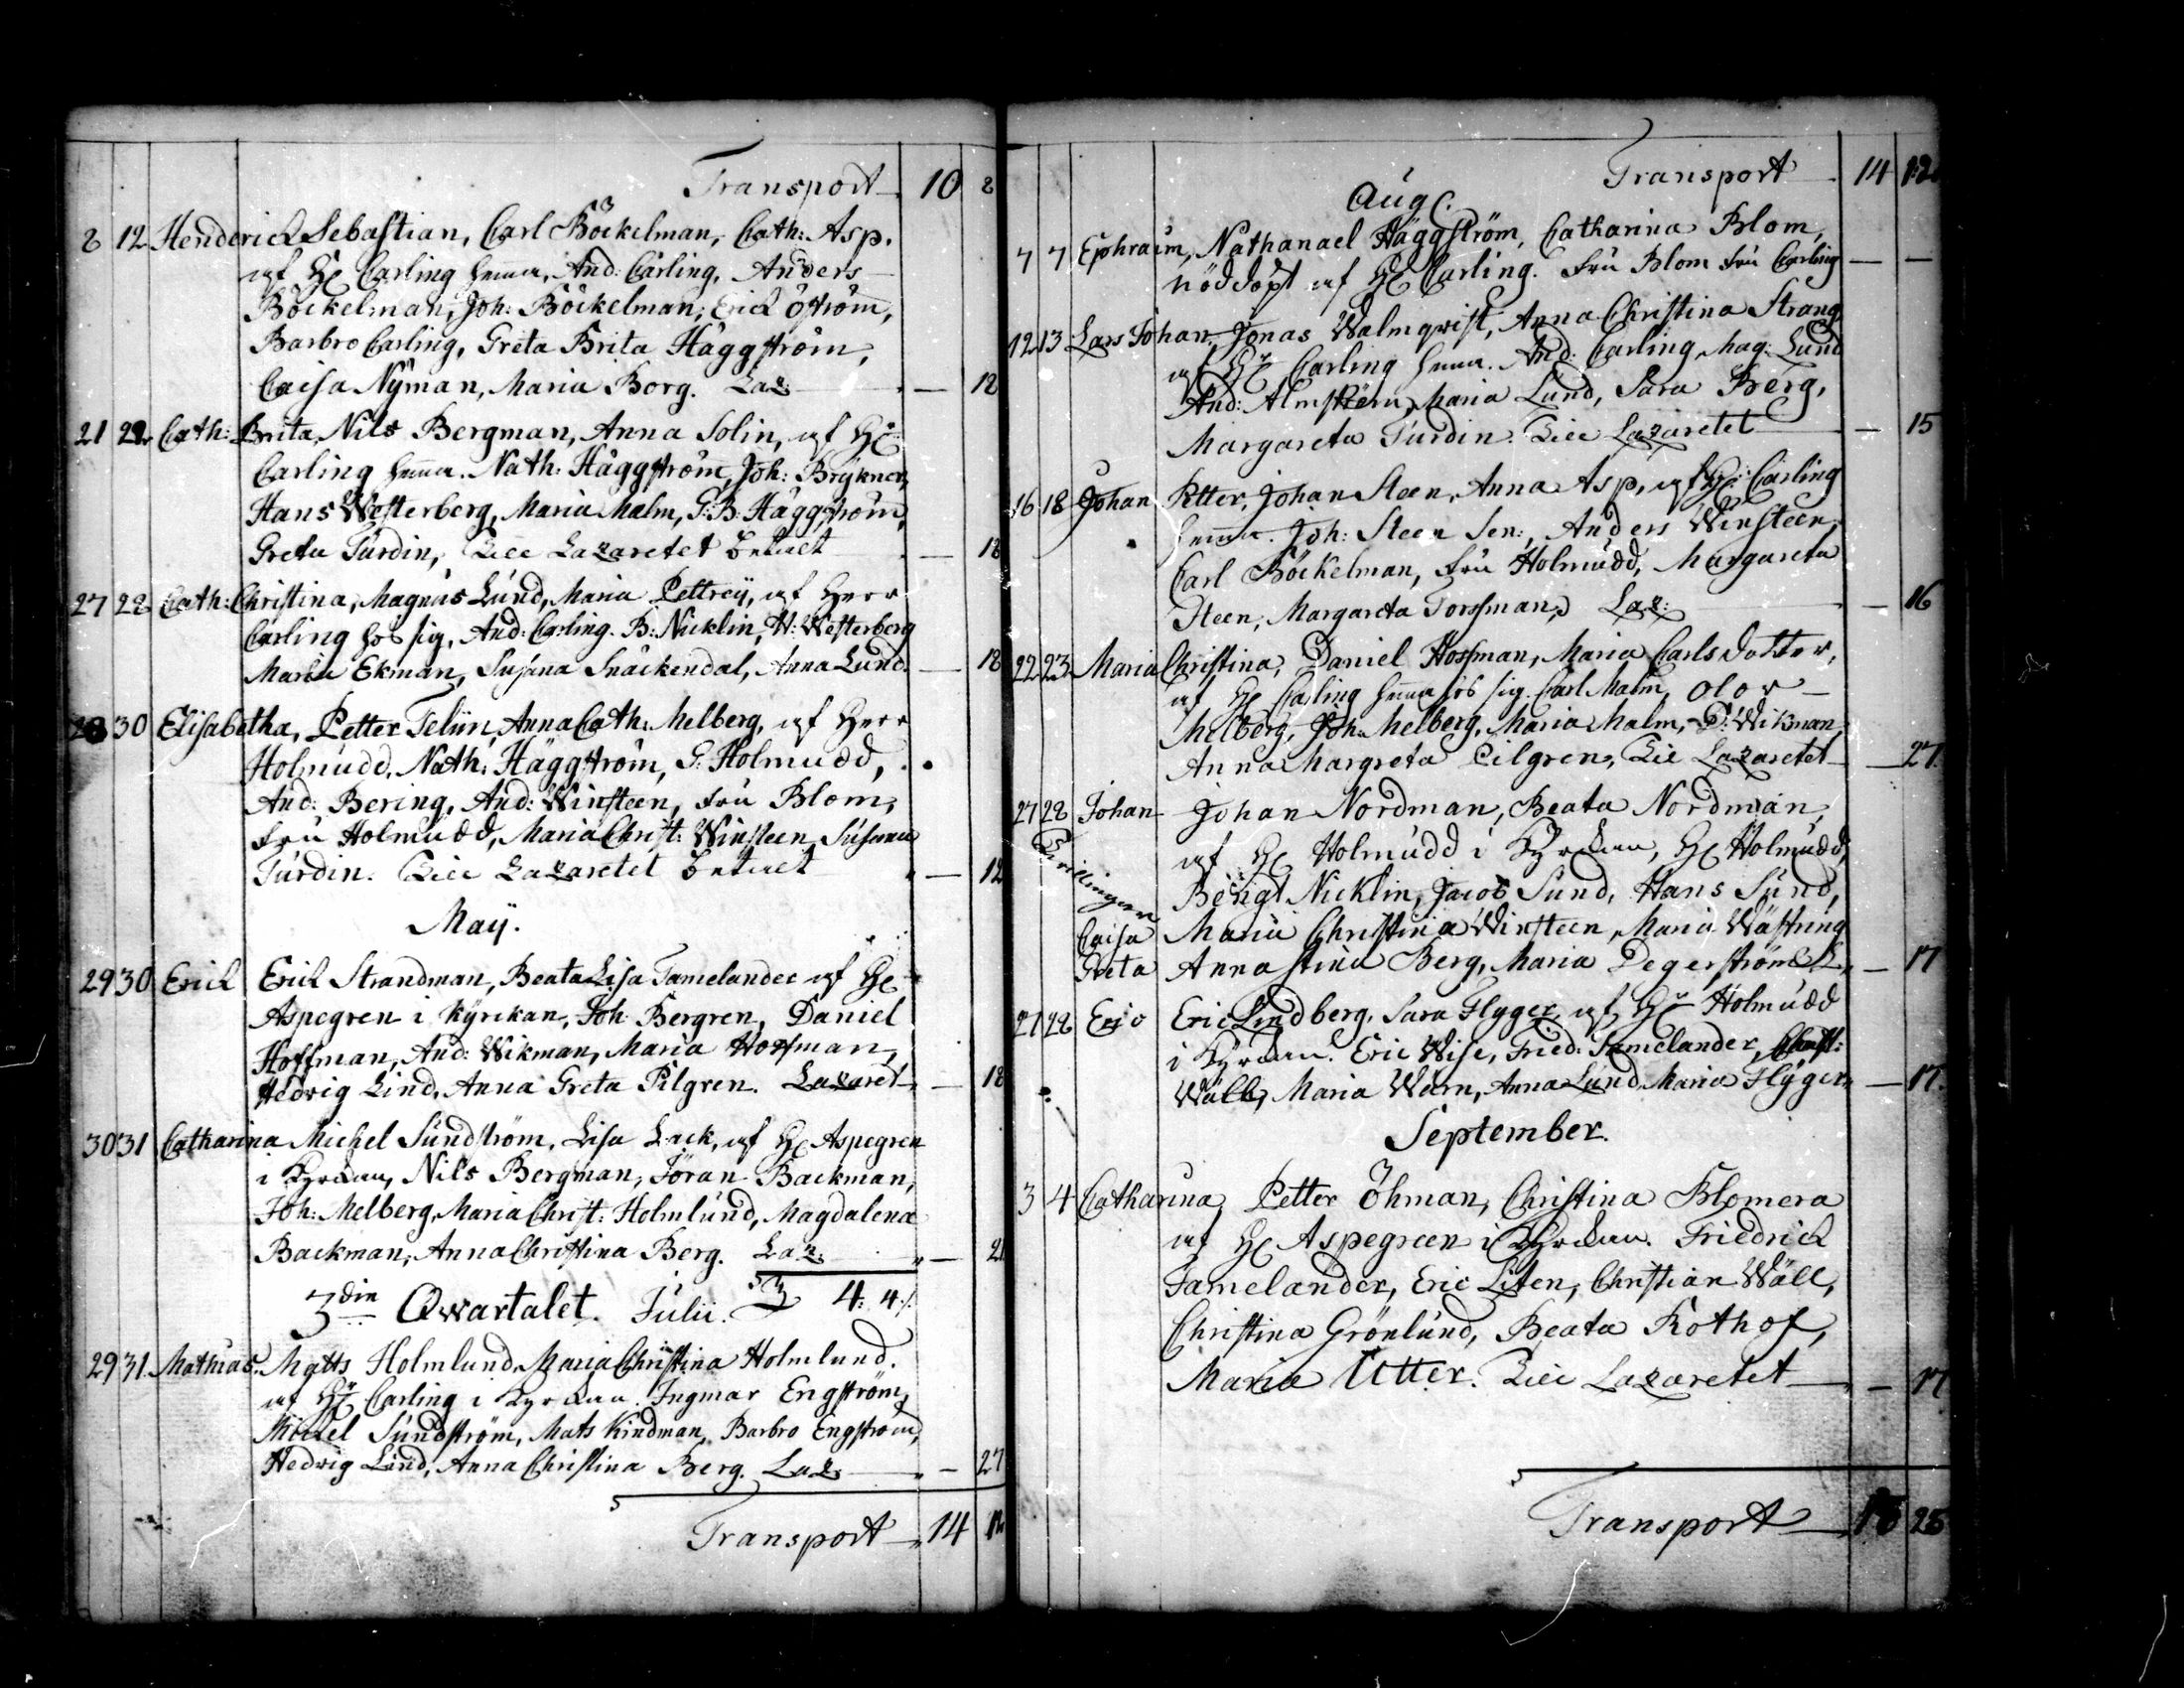 Transport 10 8
8 12 Henderich Sebastian, Carl Böckelman, Cath: Asp.
af H: Carling hemma, And: Carling, Anders
Böckelman, Joh: Böckelman, Erich Öström,
Barbro Carling, Greta Brita Häggström,
Caisa Nyman, Maria Borg. Laz: — 18
21 22 Cath: Brita, Nils Bergman, Anna Solin, af H:
Carling hemma. Nath: Häggström, Joh: Brykner,
Hans Westerberg, Maria Malm, G: B: Häggström,
Greta Turdin, Till Lazaretet betalt — 18
27 28 Cath: Christina, Magnus Lund, Maria Pettrey, af Herr
Carling hos sig, And: Carling. B: Nicklin, W: Westerberg
Maria Ekman, Susana Snäckendal, Anna Lund. — 18
30 Elisabetha, Petter Teliin, Anna Cath: Melberg, af Herr
Holmudd. Nath: Häggström, G: Holmudd,
And: Bering, And: Winsteen, Fru Blom,
Fru Holmudd, Maria Christ: Winsteen, Susanna
Turdin. Till Lazaretet betalt — 12
Maÿ.
29 30 Erich Erich Strandman, Beata Lisa Tamelander af H:
Aspegren i Kyrckan, Joh: Bergren, Daniel
Hoffman, And: Wikman, Maria Hoffman,
Hedvig Lind, Anna Greta Pilgren. Lazaret — 18
30 31 Catharina Michel Sundström, Lisa Lack, af H: Aspegren
i Kyrckan, Nils Bergman, Jöran Backman,
Joh: Melberg, Maria Christ: Holmlund, Magdalena
Backman, Anna Christina Berg. Laz: — 21
3din Qwartalet. Julii. 4: 4
29 31. Mathias. Matts Holmlund, Maria Christina Holmlund.
af H: Carling i Kyrckan. Ingmar Engström,
Michel Sundström, Mats Kindman, Barbro Engström,
Hedvig Lind, Anna Christina Berg. Laz — 27
Transport 14 12
Transport 14 12
Aug.
7 7 Ephraim, Nathanael Häggström, Catharina Blom,
nöddöpt af H: Carling. Fru Blom Fru Carling — —
12 13 Lars Johan, Jonas Walmqvist, Anna Christina Strang
af H: Carling hemma. And: Carling, Mag: Lund
And: Almström, Maria Lund, Sara Berg,
Margareta Turdin. Till Lazaretet — 15
16 18 Johan Petter, Johan Steen, Anna Asp, af H: Carling
hemma. Joh: Steen Sen:, Anders Winsteen,
Carl Böckelman, Fru Holmudd, Margareta
Steen, Margareta Torssman, Laz: — 16
22 23 Maria Christina, Daniel Hoffman, Maria Carlsdotter,
af H: Carling hemma hos sig. Carl Malm, Olov
Melberg, Joh: Melberg, Maria Malm, Wikman,
Anna Margreta Pilgren, Till Lazaretet — 27.
27 28 Johan Johan Nordman, Beata Nordman,
af H: Holmudd i Kyrckan, H: Holmudd,
Trillingar Bengt Nicklin, Jacob Sund, Hans Sund,
Caisa Maria Christina Winsteen, Maria Wästring
Greta Anna Stina Berg, Maria Degerström — 17
27 28 Eric Eric Lindberg, Sara Flyger, af H: Holmudd
i Kyrckan. Eric Wise, Fried: Tamelander, Christ:
Wäll, Maria Warn, Anna Lund, Maria Flyger — 17.
September.
3 4 Catharina, Petter Öhman, Christina Blomera
af H: Aspegreen i Kyrckan. Friedrich
Tamelander, Eric Liten, Christian Wäll,
Christina Grönlund, Beata Rothof,
Maria Utter. Till Lazaretet — 17
Transport 28